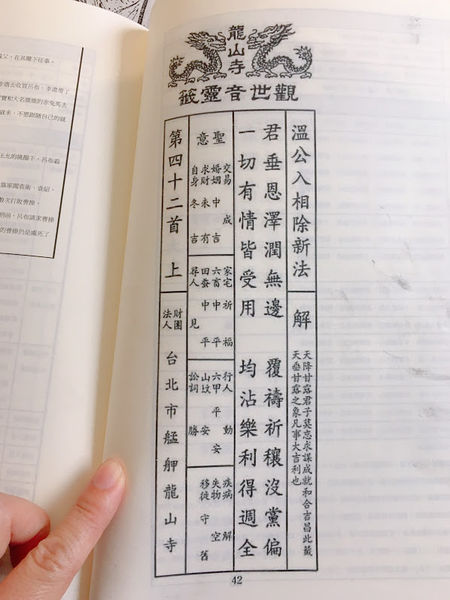 龍山寺
觀世音靈籤
溫公入相除新法
解
天降甘露君子莫忘求謀成就和合吉昌此籤
天垂甘露之象凡事大吉利也
君垂恩澤潤無邊 覆禱祈穰沒黨偏
一切有情皆受用 均沾樂利得週全
聖意
交易 成
婚姻 中 吉
求財 未 有
自身 冬 吉
家宅 祈 福
六畜 中 平
田蚕 中 平
尋人 見
行人 動
六甲 平 安
山坟 安
訟詞 勝
疾病 解
失物 空
移徒 守 舊
第四十二首 上
財團法人
台北市艋舺龍山寺
42
父，在其麾下任事。